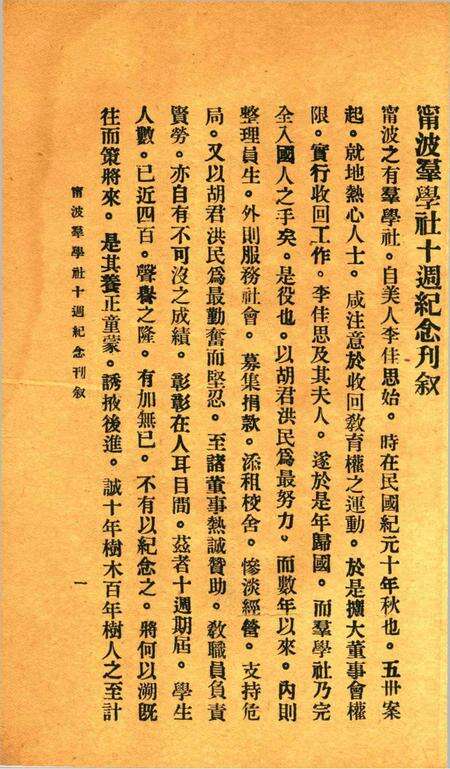 甯波羣學社十週紀念刊叙
甯波之有羣學社。自美人李佳思始。時在民國紀元十年秋也。五卅案
起。就地熱心人士。咸注意於收回敎育權之運動。於是擴大董事會權
限。實行收回工作。李佳思及其夫人。遂於是年歸國。而羣學社乃完
全入國人之手矣。是役也。以胡君洪民爲最努力。而數年以來。內則
整理員生。外則服務社會。募集捐款。添租校舍。慘淡經營。支持危
局。又以胡君洪民爲最勤奮而堅忍。至諸董事熱誠贊助。敎職員負責
賢勞。亦自有不可沒之成績。彰彰在人耳目間。茲者十週期屆。學生
人數。已近四百。聲譽之隆。有加無已。不有以紀念之。將何以溯既
往而策將來。是其養正童蒙。誘掖後進。誠十年樹木百年樹人之至計
甯波羣學社十週紀念刊叙
一